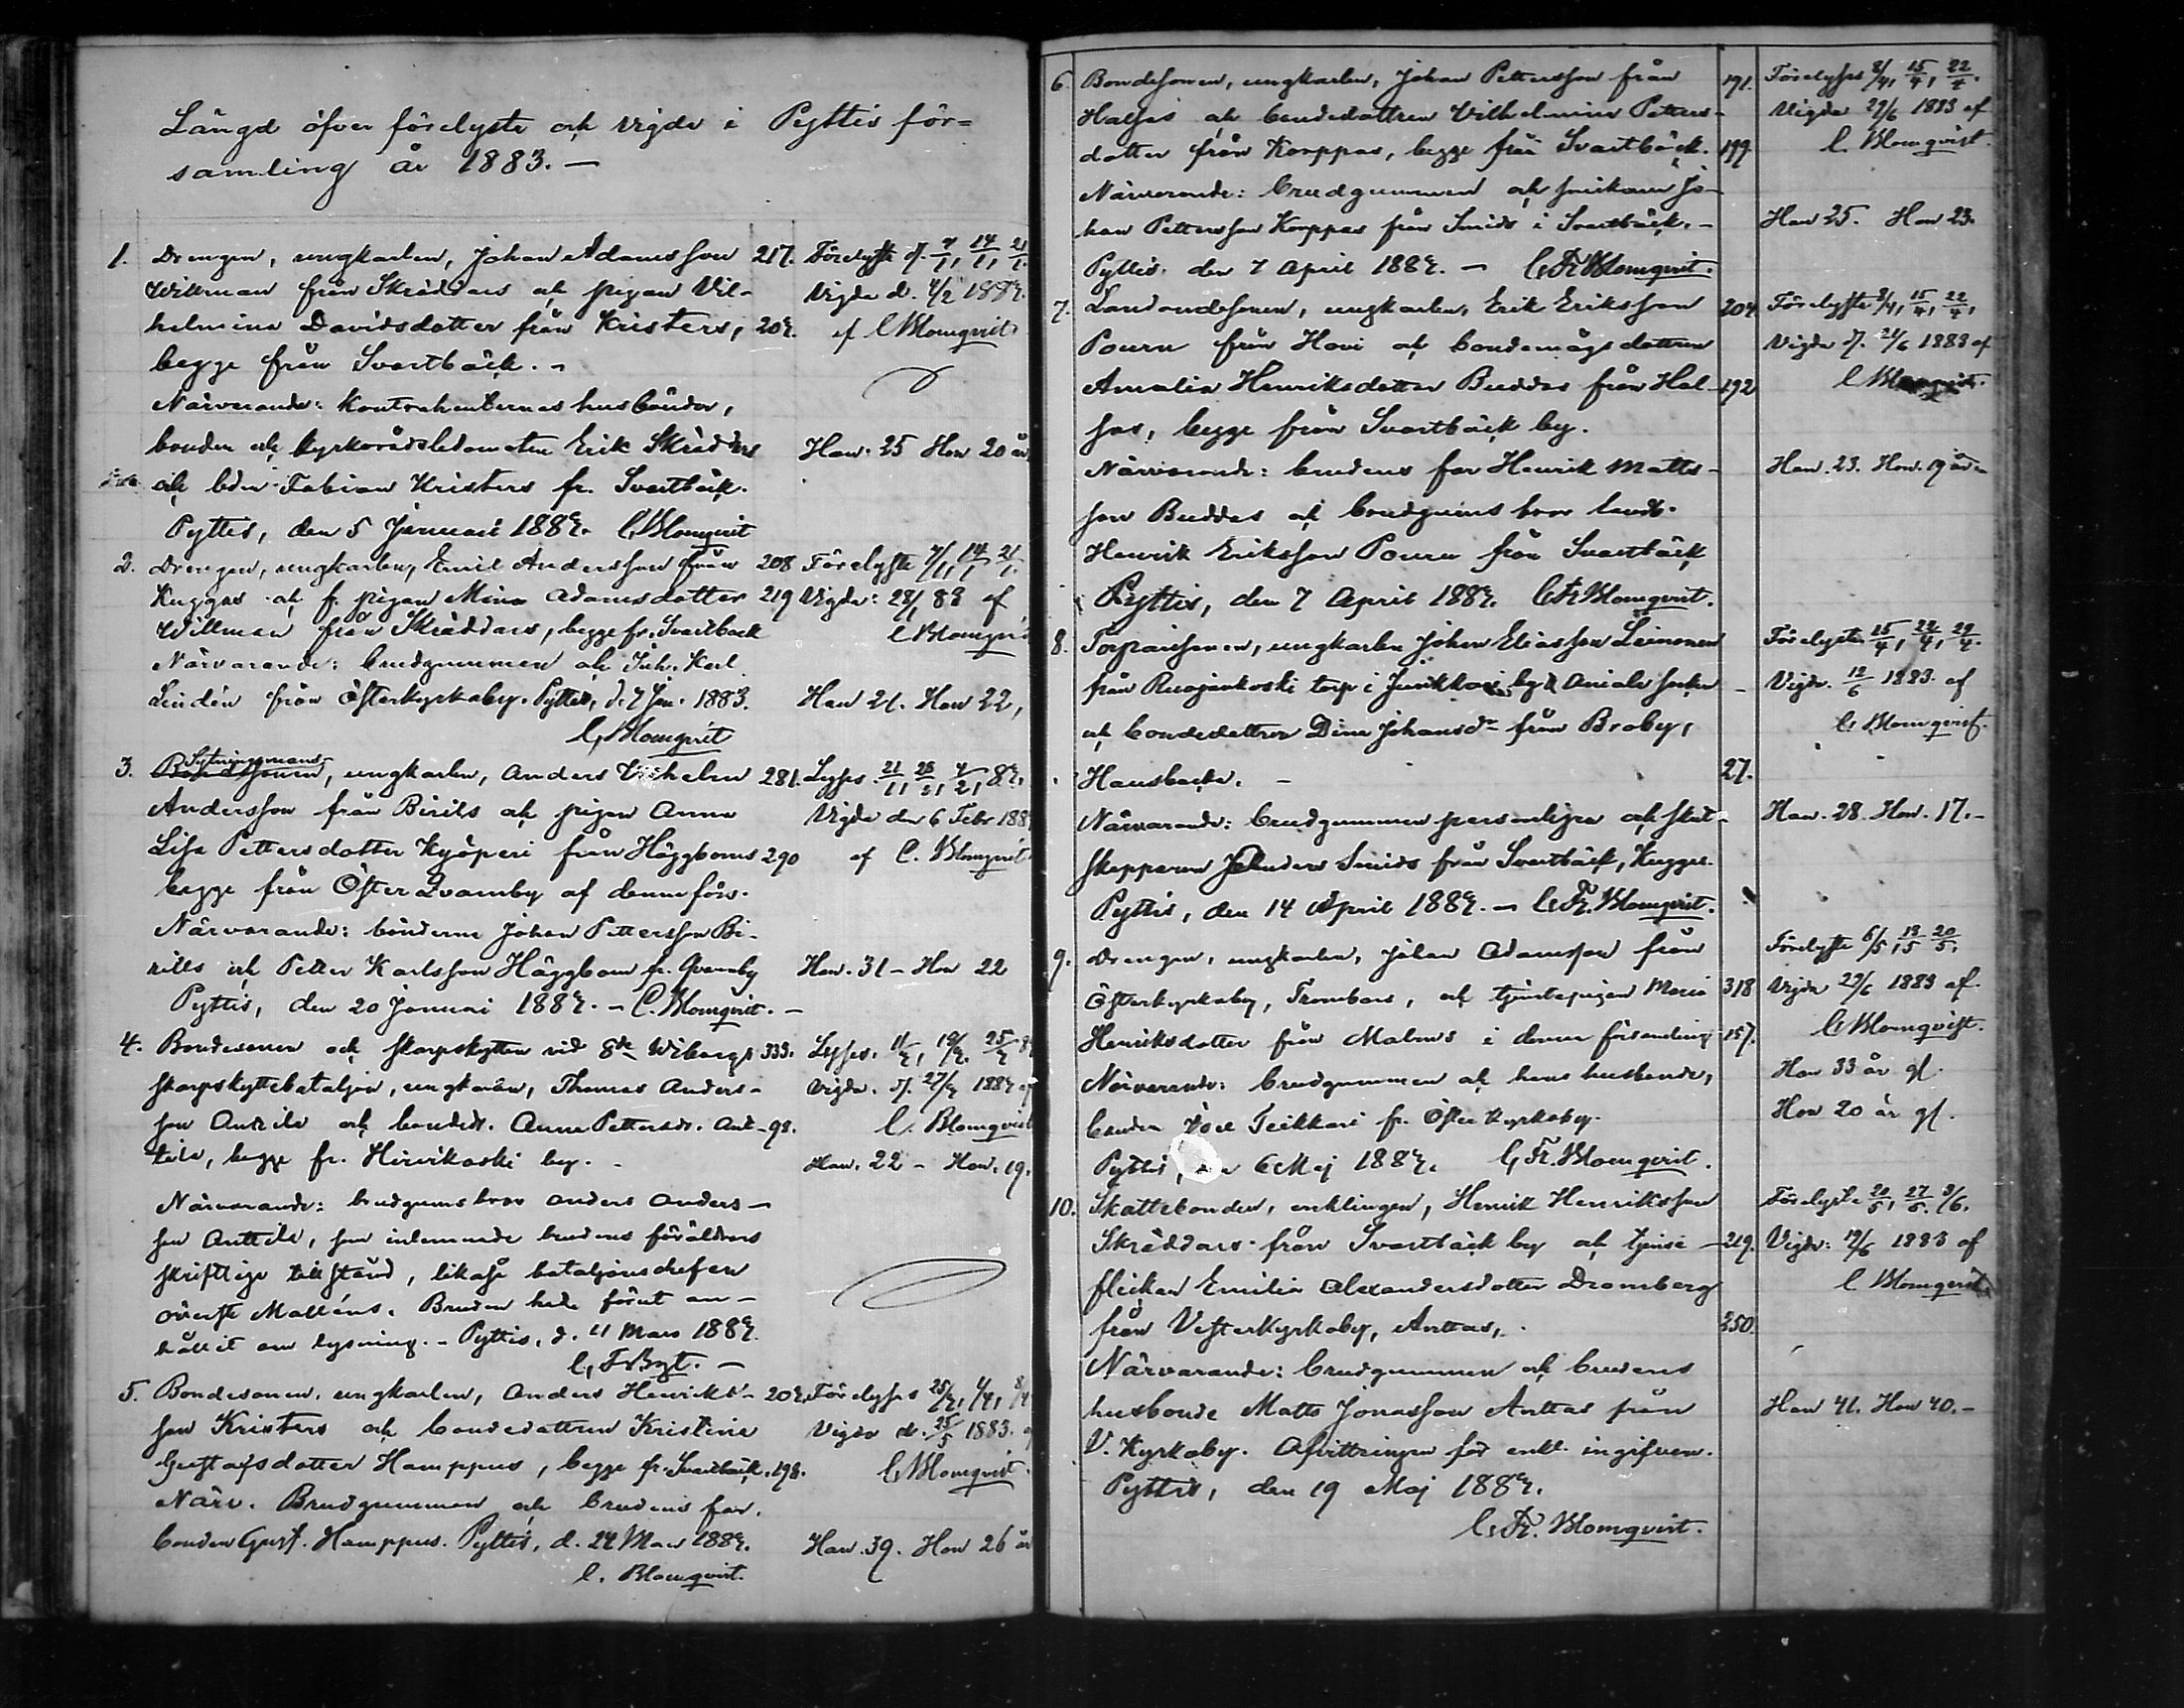 Längd öfver förelysta och vigde i Pyttis för=
samling år 1883. —
1. Drengen, ungkarlen, Johan Adamsson 217. Förelyste d. 7/1, 14/1, 21/1.
Willman från Skräddars och pigan Vil- Vigde d. 4/2 1883.
helmina Davidsdotter från Kristers, 202. af C Blomqvist
begge från Svartbäck. -
Närvarande: Kontrahenternas husbönder,
bonden och kyrkorådsledamoten Erik Skräddars Han. 25 Hon 20 år
och bdn Fabian Kristers fr. Svartbäck.
Pyttis, den 5 Januari 1883. C Blomqvist
2. Drengen, ungkarlen, Emil Andersson från 208 Förelyste 7/1, 14/1, 21/1.
Kuggas och f. pigan Mina Adamsdotter 219 Vigde: 28/1 83 af
Willman från Skräddars, begge fr. Svartback C Blomqvis
Närvarande: brudgummen och Inh. Karl
Lindén från Österkyrkoby. Pyttis, d. 7 Jan. 1883. Han 21. Hon 22,
C, Blomqvist
3. Sytningsmans
Bondsonen, ungkarlen, Anders Vilhelm 281. Lyses 21/1, 28/1, 4/2, 83.
Andersson från Birils och pigan Anna Vigde den 6 Febr 188
Lisa Pettersdotter Kyöperi från Häggboms 290 af C. Blomqvist
begge från Öster Qvarnby af denna förs.
Närvarande: bönderne Johan Pettersson Bi-
rills och Petter Karlsson Häggbom fr. Qvarnby Han. 31 - Hon 22
Pyttis, den 20 Januari 1883. - C. Blomqvist. -
4. Bondesonen och skarpskytten vid 8de Wiborgs 333. Lyses. 11/3, 18/3. 25/3 8
skarpskyttebataljon, ungkarlen, Thomas Anders- Vigde. d. 27/3 1883 af
son Anttila och bondedr. Anna Pettersdr. Ant- 98. C. Blomqvist
tila, begge fr. Hirvikoski by. - Han. 22 - Hon. 19.
Närvarande: brudgums bror Anders Anders-
son Anttila, som inlemnade brudens föräldrars
skriftliga tillstånd, likaså bataljonschefen
öfverste Malléns. Bruden hade förut an-
hållit om lysning. - Pyttis, d. 11 Mars 1883.
C, F. Bqt. -
5. Bondesonen, ungkarlen, Anders Henriks- 202. Förelyses 25/3, 1/4, 8/4
son Kristers och bondedottren Kristina Vigde d. 25/5 1883.
Gustafsdotter Hamppus, begge fr. Svartbäck. 198. C, Blomqvist.
Närv. Brudgummen och brudens far.
bonden Gust. Hamppus. Pyttis, d. 24 Mars 1883. Han. 39. Hon 26 år
C. Blomqvist.
6. Bondesonen, ungkarlen, Johan Pettersson från 191. Förelyses 8/4, 15/4, 22/4.
Halsas och bondedottren Vilhelmina Petters- Vigde 29/6 1883 af
dotter från Korppas, begge från Svartbäck. 199. C. Blomqvist.
Närvarande: brudgummen och Jo-
han Pettersson Korppas från Smids i Svartbäck. - Han 25. Hon 23.
Pyttis. den 7 April 1883. - C, Fr. Blomqvist.
7. Landbondesonen, ungkarlen, Erik Eriksson 204 Förelyste 8/4, 15/4, 22/4,
Pouru från Hovi och bondemågsdottren Vigde d. 24/6 1883 af
Amalia Henriksdotter Buddas från Hal- 192 C Blomqvist.
sas, begge från Svartbäck by.
Närvarande: brudens far Henrik Matts- Han. 23. Hon. 19 år
son Buddas och brudgums bror landb.
Henrik Eriksson Pouru från Svartbäck
Pyttis, den 7 April 1883. C Fr Blomqvist.
8. Torparesonen, ungkarlen Johan Eliasson Leinonen Förelyste 15/4, 22/4, 29/4.
från Ruojankoski torp i by Anjala - Vigde. 12/6 1883. af
och bondedottren Dina Johansdr från Broby, C. Blomqvist.
Hansbacka. - 27.
Närvarande: brudgummen personligen och skut- Han. 28. Hon. 17. -
skepparen Smids från Svartbäck, Kuggas.
Pyttis, den 14 April 1883. - C. Fr. Blomqvist.
9. Drengen, ungkarlen, Johan Adamsson från Förelyste 6/5, 13/5 20/5.
Österkyrkoby, Trombars, och tjenstepigan Maria 318 Vigde 29/6 1883 af.
Henriksdotter från Malmis i denna församling 157. C Blomqvist.
Närvarande: brudgummen och hans husbonde, Han 33 år gl.
bonden Teikkari fr. Öster kyrkoby. Hon 20 år gl.
Pyttis, den 6 Maj 1883. C, Fr. Blomqvist.
10. Skattebonden, enklingen, Henrik Henriksson Förelyste 20/5, 27/5. 3/6.
Skräddars från Svartbäck by och tjenste- 219. Vigde: 19/6 1883 af
flickan Emilia Alexandersdotter Dromberg C Blomqvist
från Vesterkyrkoby, Anttas, . 250.
Närvarande: brudgummen och brudens
husbonde Matts Jonasson Anttas från Han 41. Hon 40. -
V. Kyrkoby. Afvittringen för enkl. ingifven.
Pyttis, den 19 Maj 1883.
C. Fr. Blomqvist.